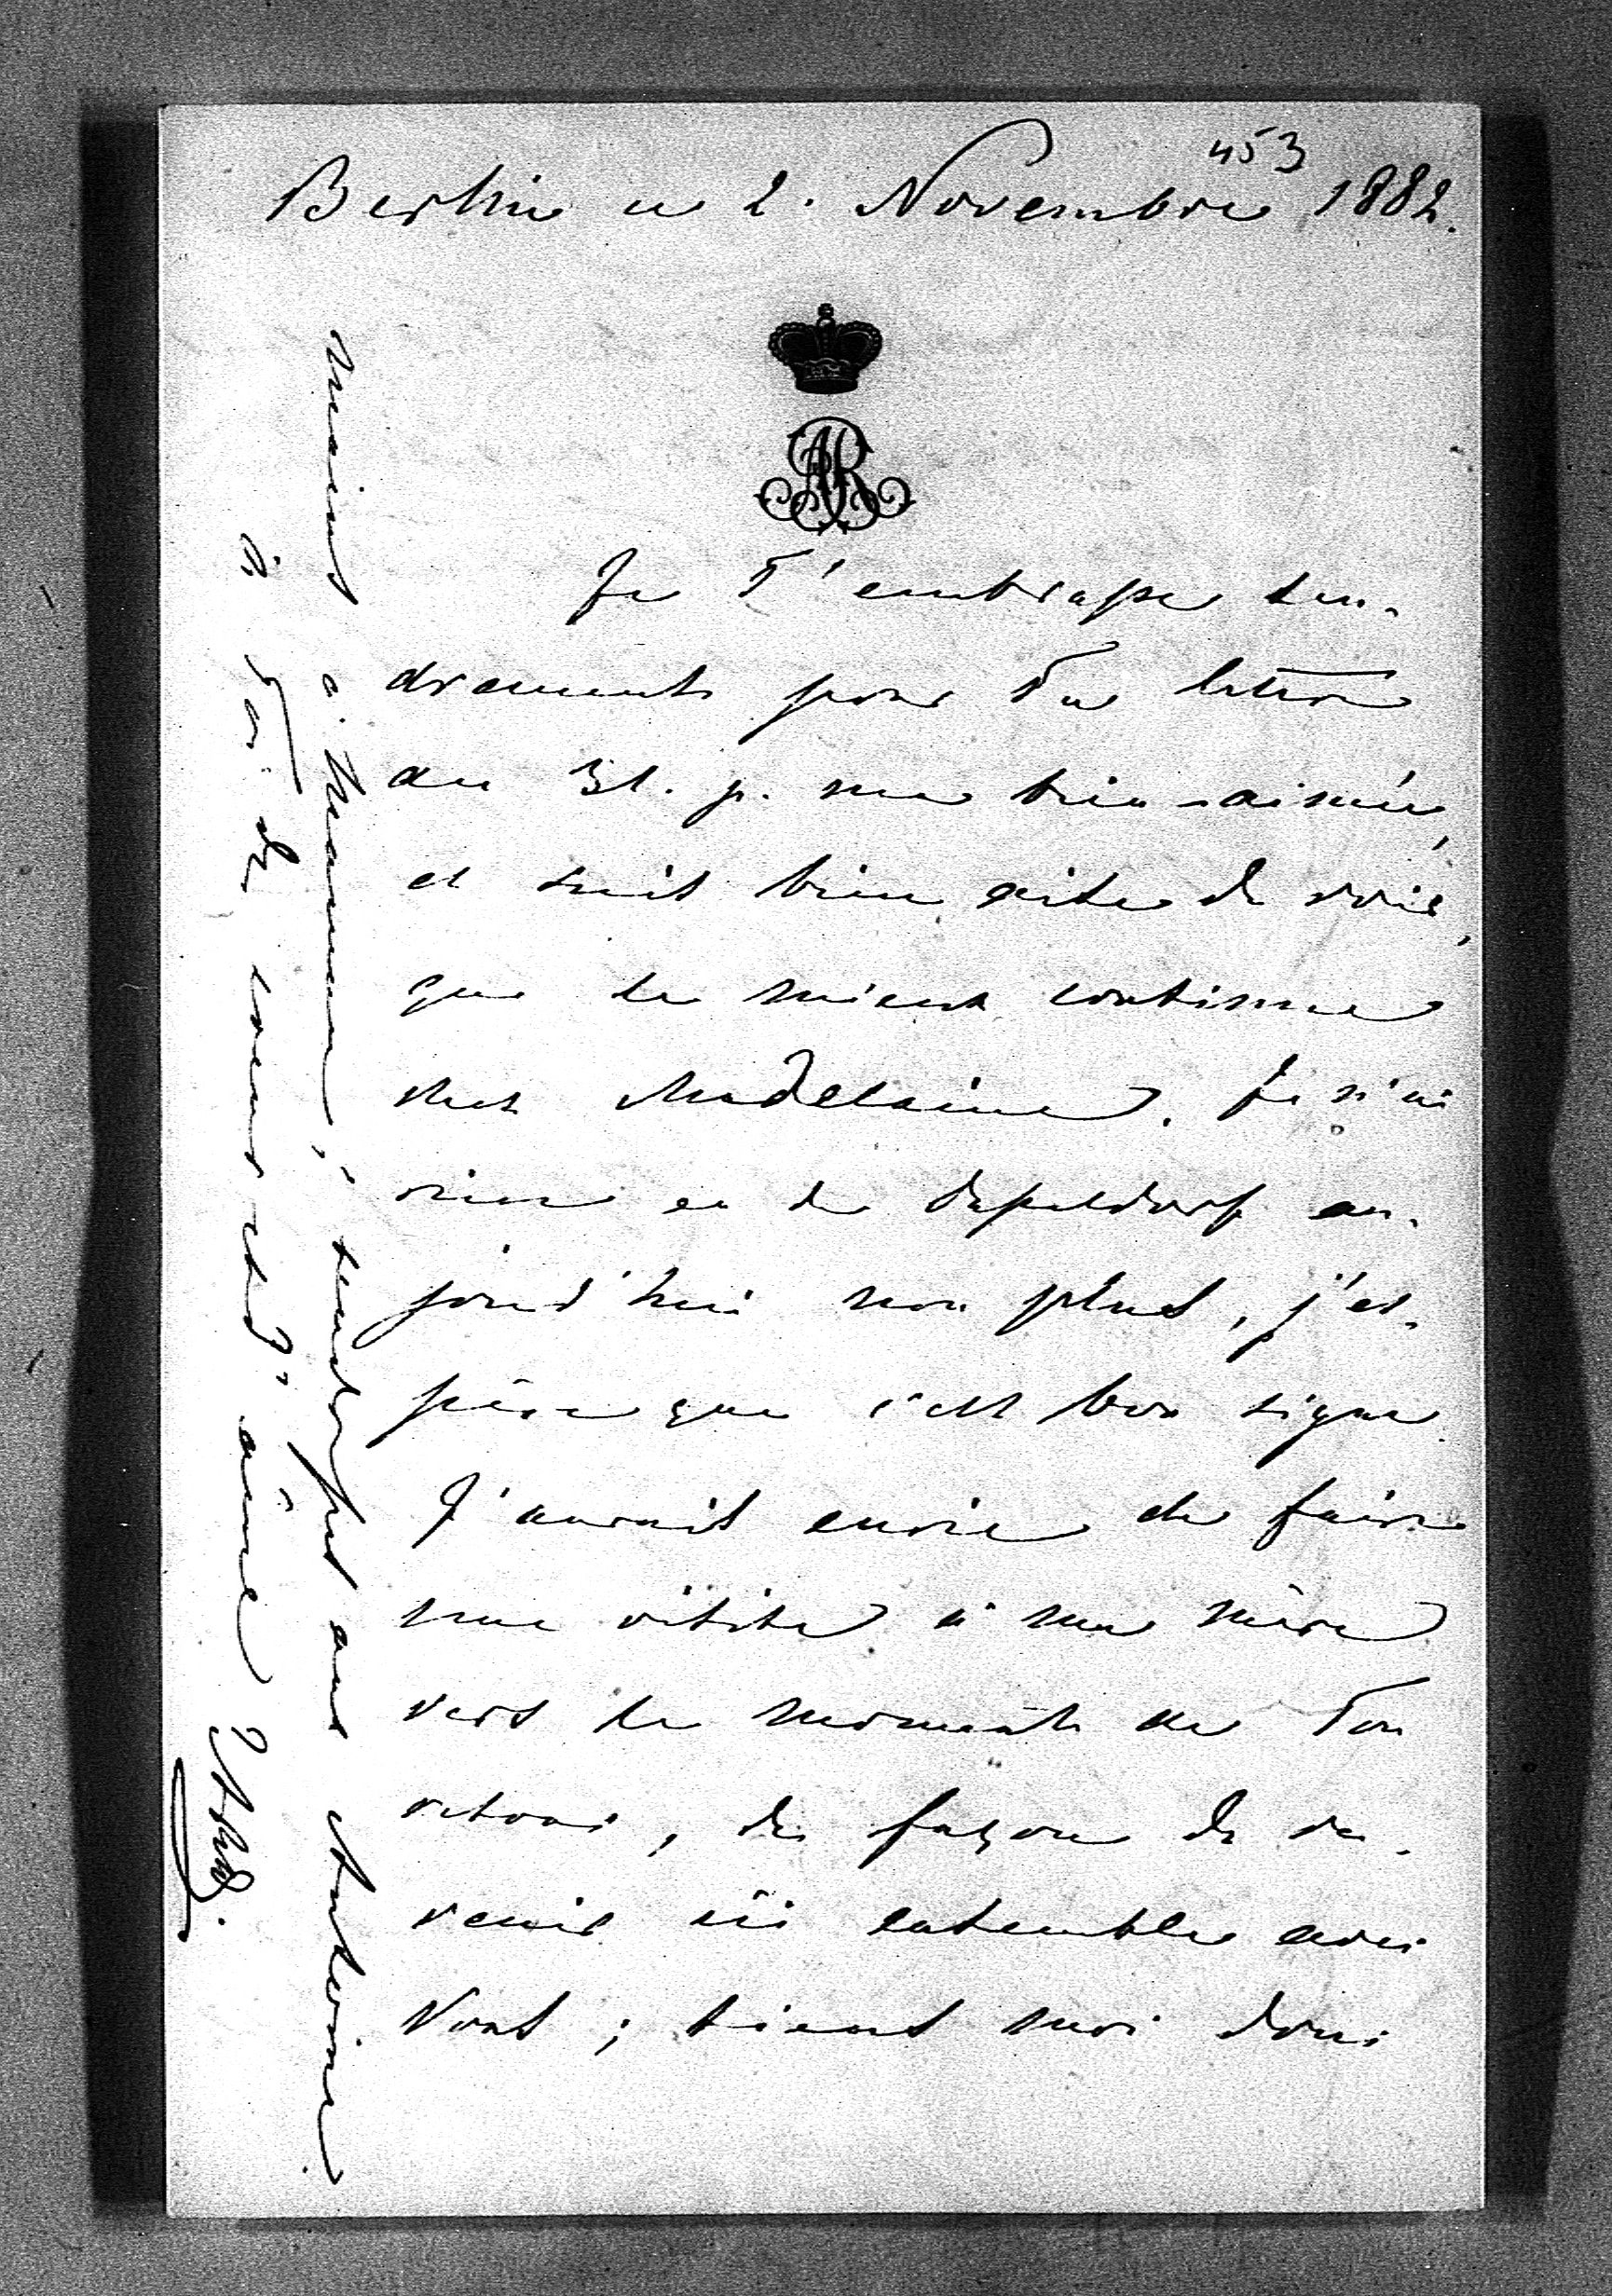 453
Berlin ce 2. Novembre 1882.
AR
Je T'embrasse ten-
drement pour Ta lettre
du 31. p. ma bien-aimée,
et suis bien aise de voir,
que le mieux continue
chez Madelaine. Je n'ai
rien eu de Dusseldorf au-
jourd'hui non plus, j'es-
père que c'est bon signe.
J'aurais envie de faire
une visite à ma mère
vers le moment de Ton
retour, de façon de re-
venir ici ensemble avec
Vous; tiens moi donc
mains à Maman, tendresses aux Antoine
à Toi de coeur et d'âme